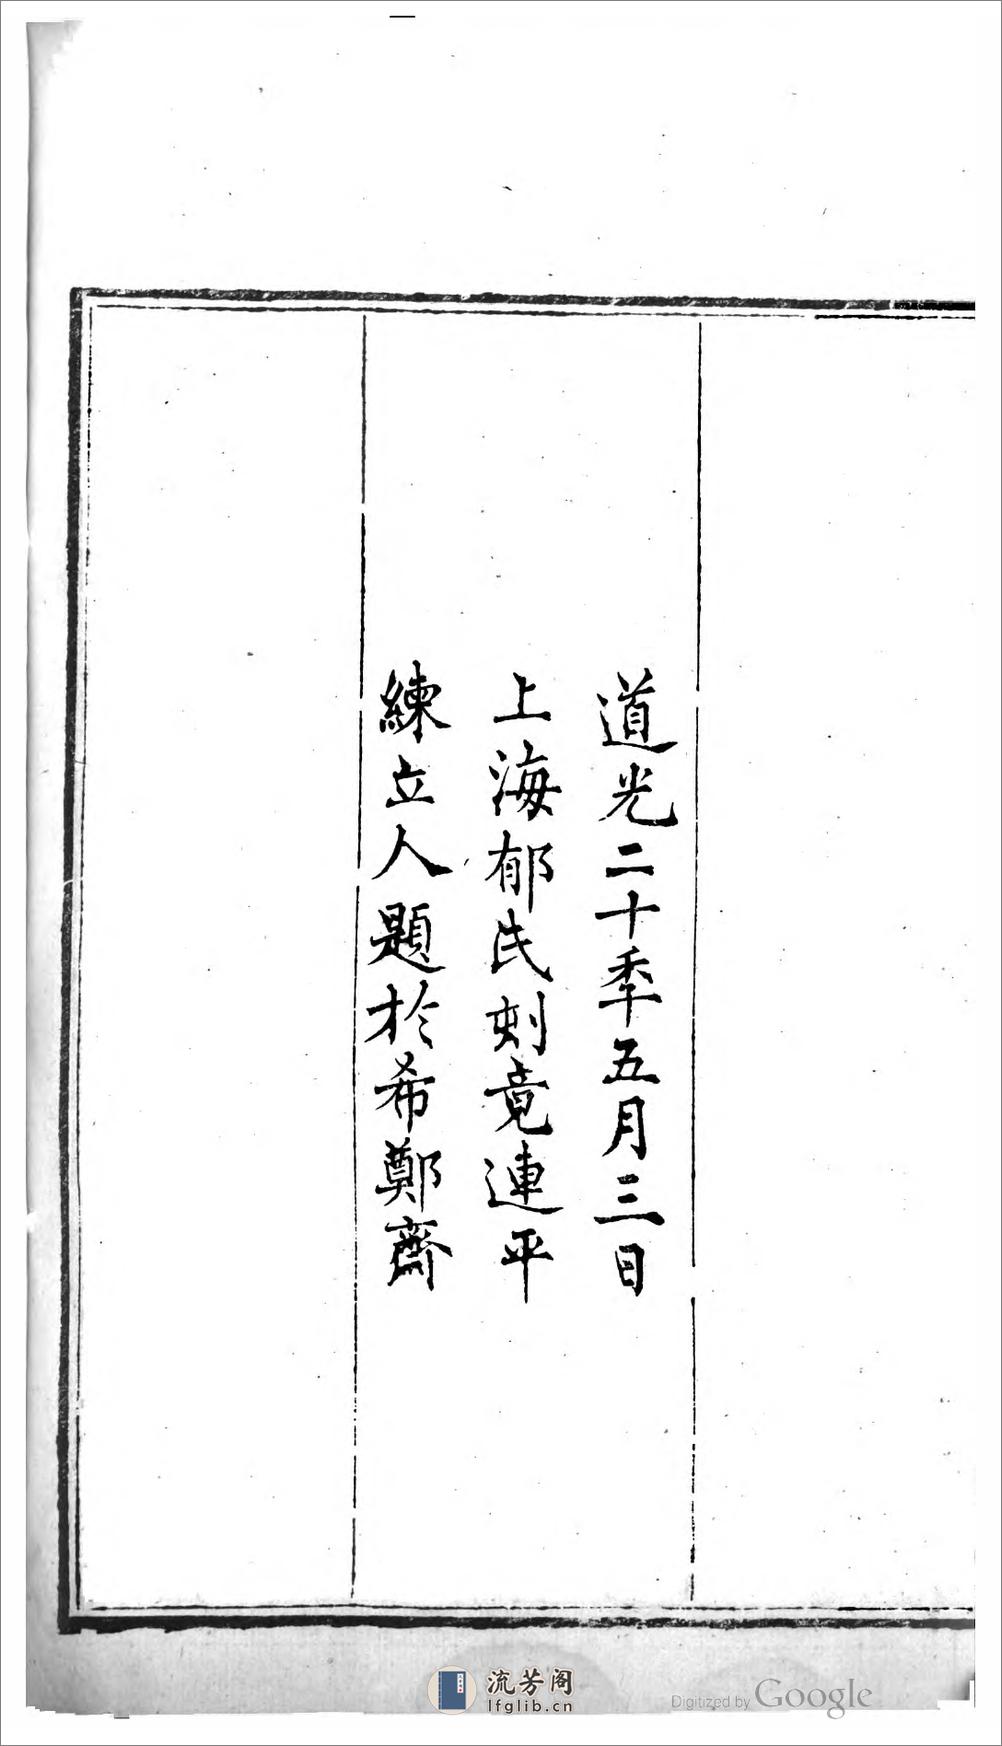 道光二十秊五月三日
上海郁氏刻竟連平
練立人題於希鄭齋
流芳阁
lfglib.cn
Digitized by Google